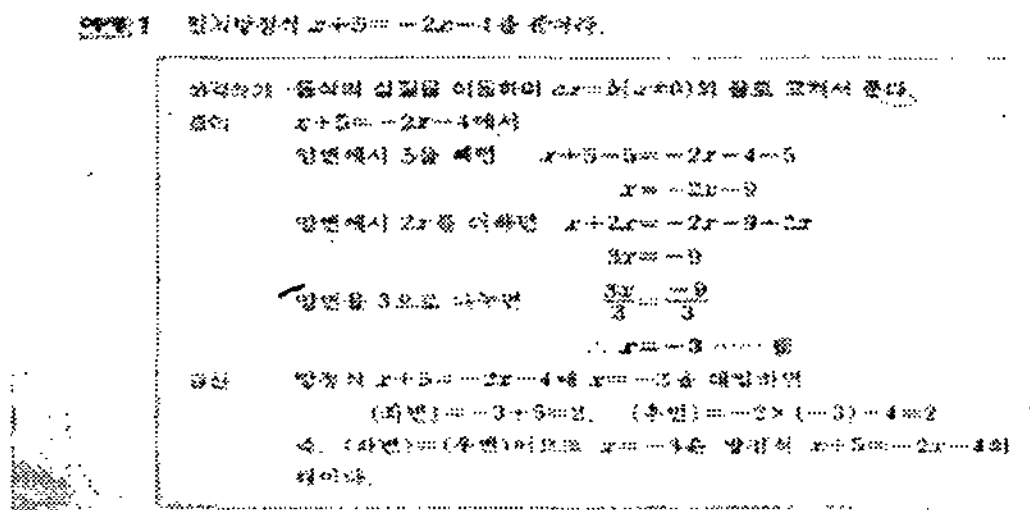 예제 1 일차방정식 x+5=-2x-4를 풀어라.
등식의 성질을 이용하여 ax=b(a≠0)의 꼴로 고쳐서 푼다.
풀이 x+5=-2x-4에서
양변에서 5를 빼면 x+5-5=-2x-4-5
x=-2x-9
양변에서 2x를 더하면 x+2x=-2x-9+2x
3x=-9
양변을 3으로 나누면 3x/3=-9/3
∴ x=-3 …… 답
검산 방정식 x+5=-2x-4에 x=-3을 대입하면
(좌변)=-3+5=2, (우변)=-2×(-3)-4=2
즉, (좌변)=(우변)이므로 x=-3은 방정식 x+5=-2x-4의
해이다.